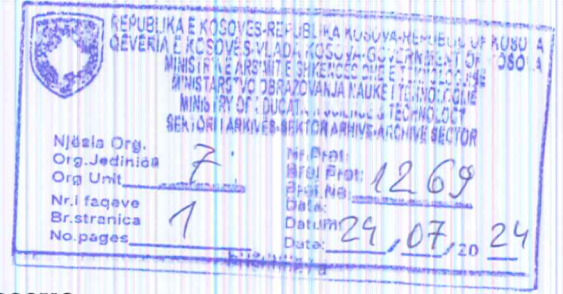 REPUBLIKA E KOSOVËS-REPUBLIKA KOSOVA-REPUBLIC OF KOSOVA
QEVERIA E KOSOVËS-VLADA KOSOVA-GOVERNMENT OF KOSOVA
MINISTRIA E ARSIMIT E SHKENCËS DHE E TEKNOLOGJISË
MINISTARSTVO OBRAZOVANJA NAUKE I TEHNOLOGIJE
MINISTRY OF EDUCATION SCIENCE & TECHNOLOGY
SEKTORI I ARKIVËS-SEKTOR ARHIVE-ARCHIVE SECTOR
Njësia Org.
Org.Jedinica
Org Unit 7
Nr.i faqeve
Br.stranica
No.pages 1
Nr.Prot:
Broj Prot:
Prot.No. 1269
Data:
Datum:
Date: 24, 07, 20 24